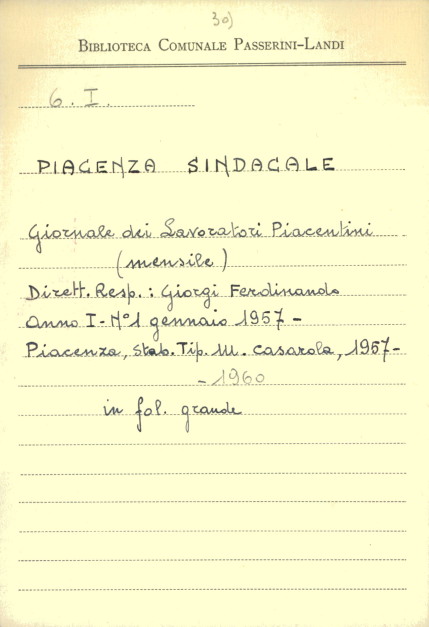 30)
BIBLIOTECA COMUNALE PASSERINI-LANDI
6. I.
PIACENZA SINDACALE
Giornale dei Lavoratori Piacentini
(mensile)
Dirett. Resp.: Giorgi Ferdinando
Anno I - N°1 gennaio 1957 -
Piacenza, Stab. Tip. M. Casarola, 1957-
- 1960
in fol. grande